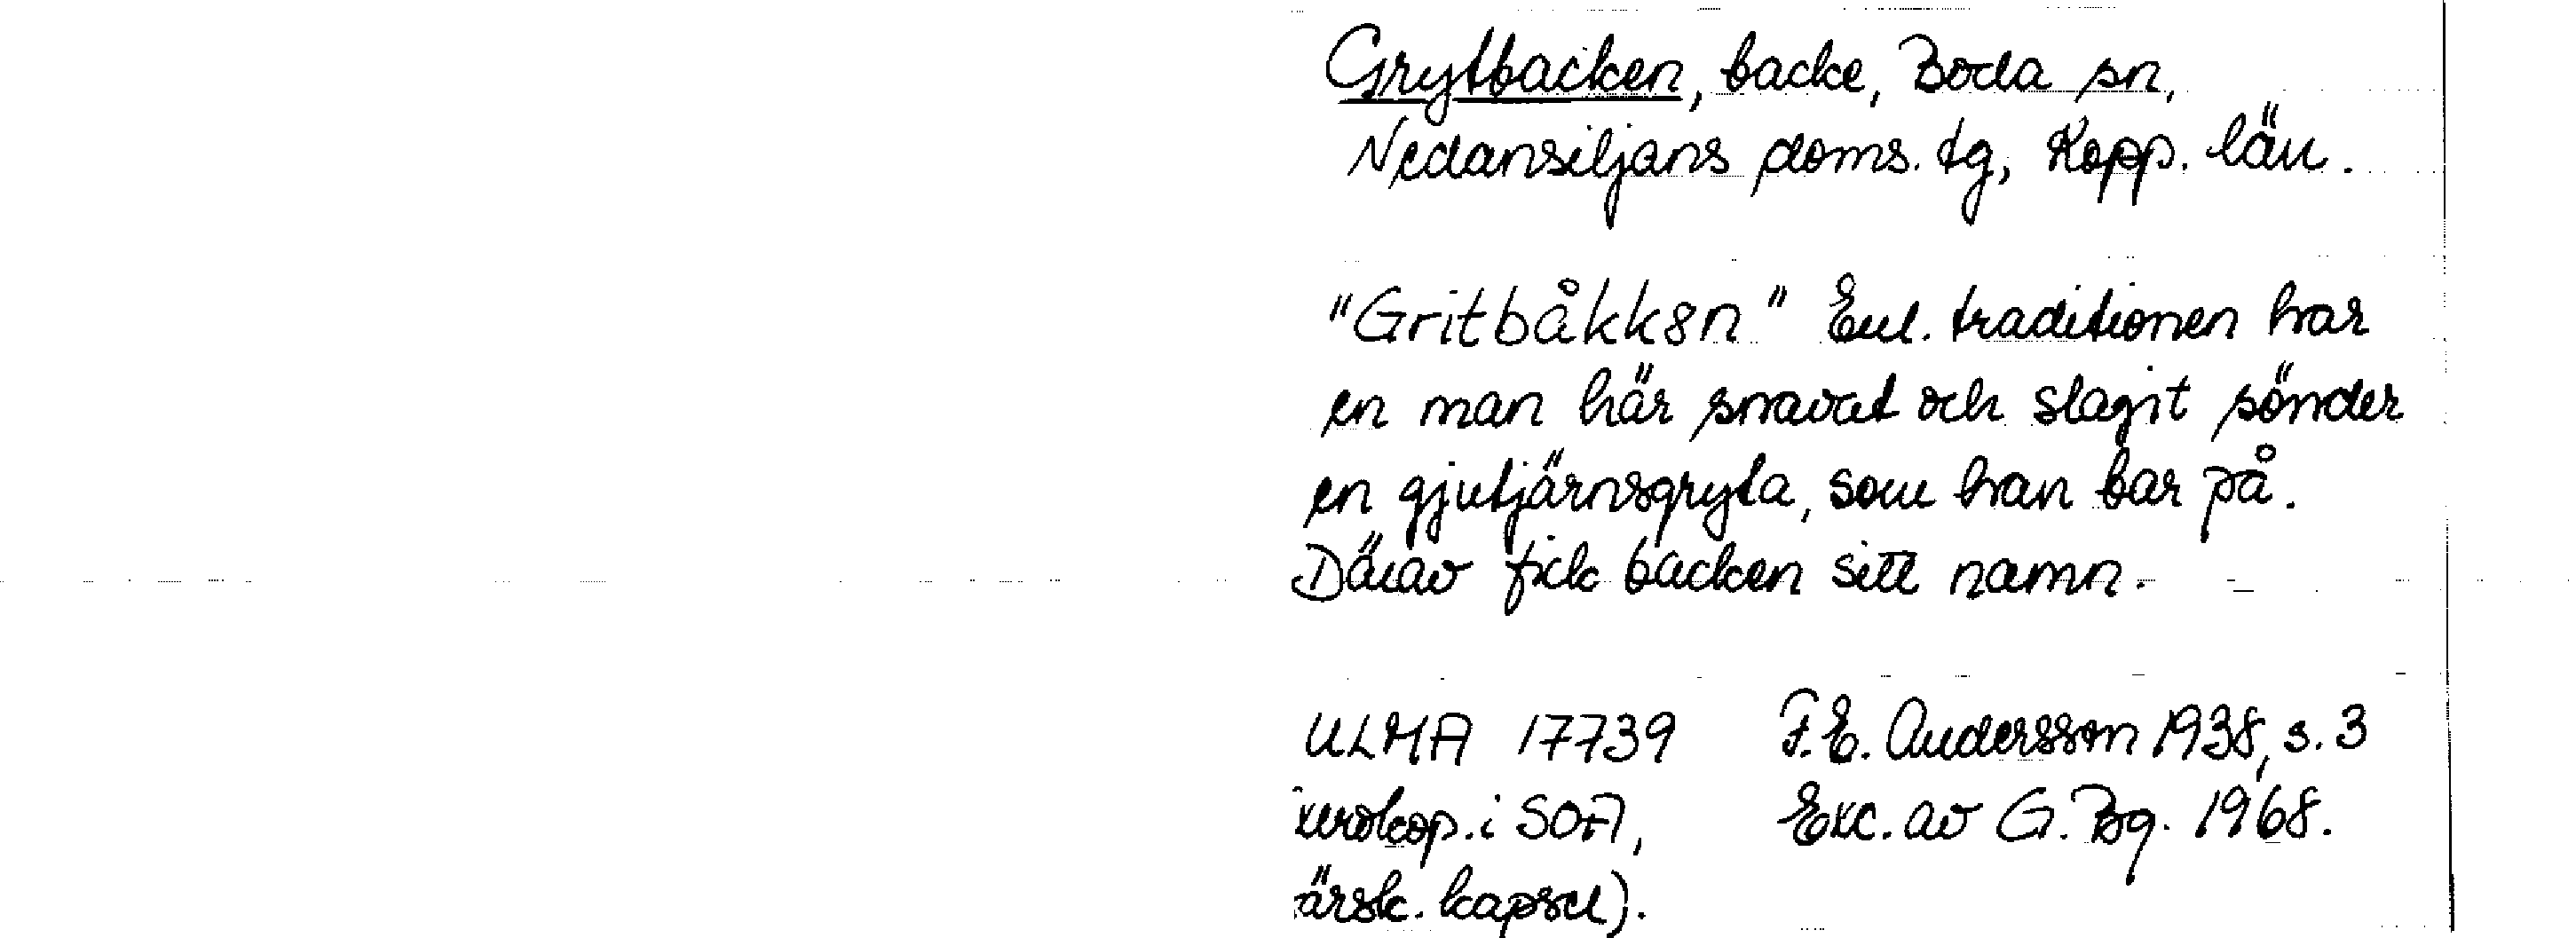 Grytbacken, backe, Boda sn,
Nedansiljans doms. tg, Kopp. län.
"Gritbåkk8n" Enl. traditionen har
en man här snavat och slagit sönder
en gjutjärnsgryta, som han bar på.
Därav fick backen sitt namn.
ULMA 17739 F.E. Andersson 1938, s. 3
xerokop. i SOA, Exc. av G. Bg. 1968.
särsk. kapsel).